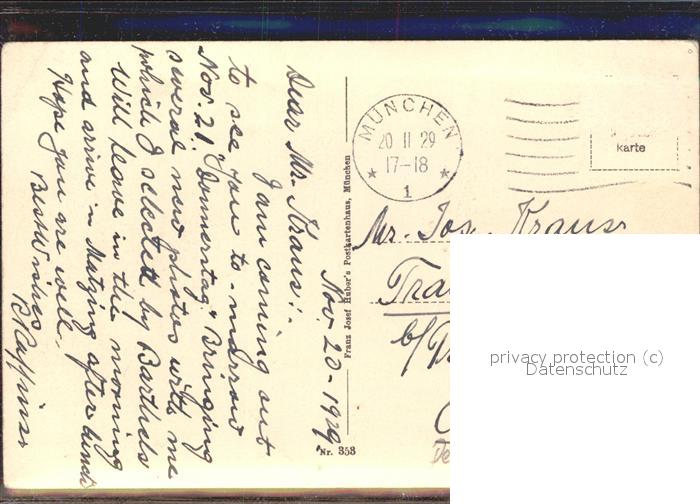 Nov. 20 - 1929.
Dear Mr. Kraus!.
I am coming out
to see you to-morrow
Nov. 21. Donnerstag. Bringing
several new photos with me
which I selected by Barthels
Will leave in the morning
and arrive in Matzing after lunch
Hope you are well.
Best Wishes
Franz Josef Huber's Postkartenhaus, München
Nr. 353
MÜNCHEN
20 11 29
17-18
1
karte
Mr. Jos. Kraus
Tra
b/
privacy protection (c)
Datenschutz